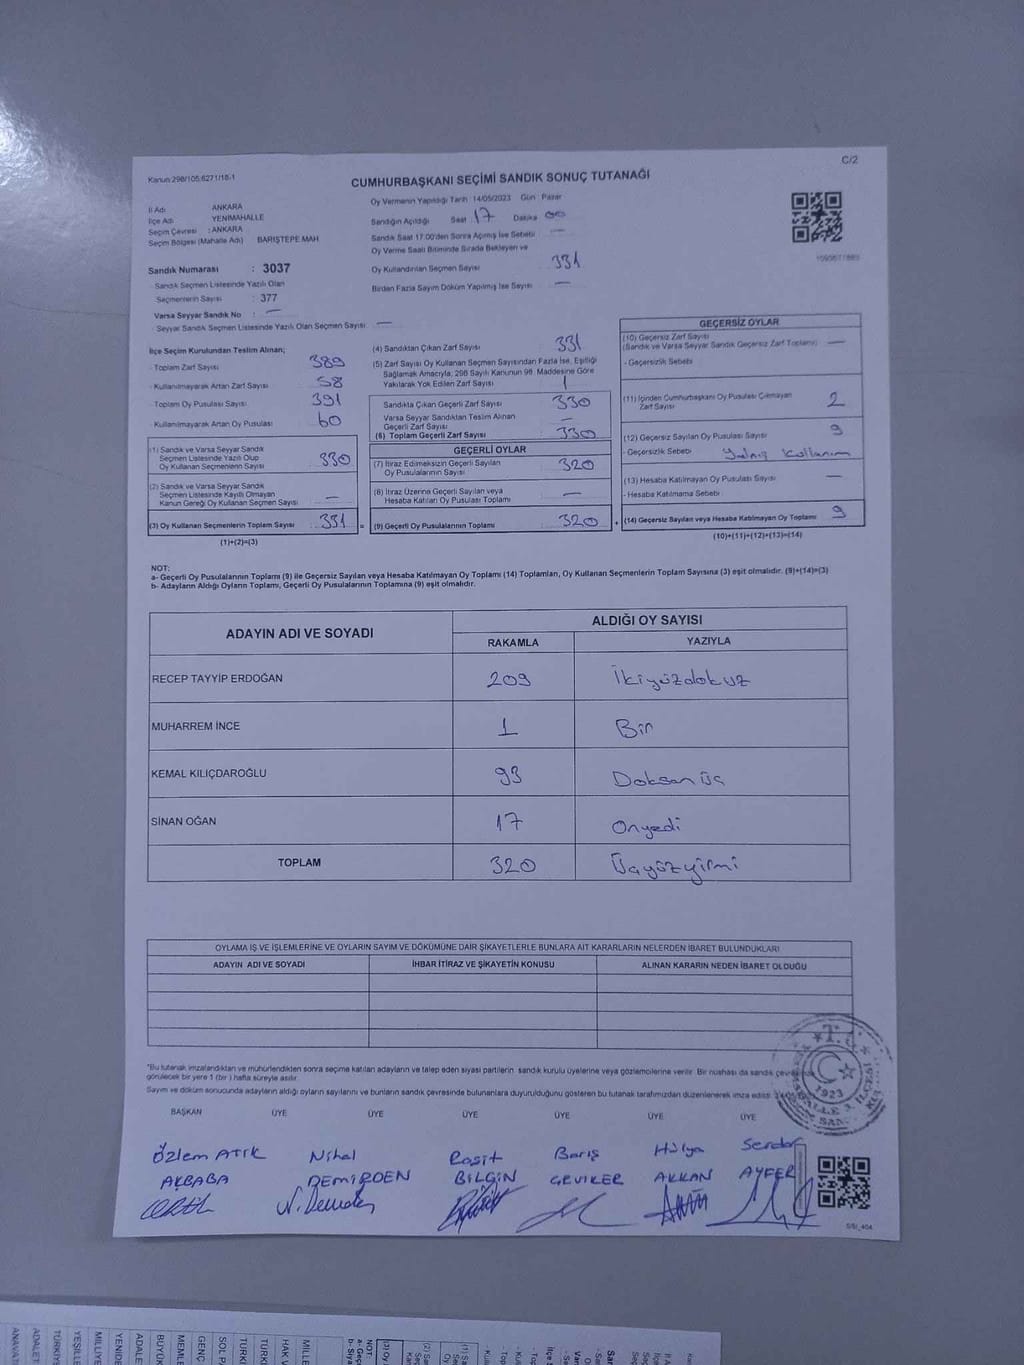 C/2
Kanun:298/105,6271/18-1
CUMHURBAŞKANI SEÇİMİ SANDIK SONUÇ TUTANAĞI
İl Adı ANKARA
İlçe Adı YENİMAHALLE
Seçim Çevresi : ANKARA
Seçim Bölgesi (Mahalle Adı) BARIŞTEPE MAH
Sandık Numarası : 3037
Sandık Seçmen Listesinde Yazılı Olan
Seçmenlerin Sayısı : 377
Varsa Seyyar Sandık No : —
Seyyar Sandık Seçmen Listesinde Yazılı Olan Seçmen Sayısı —
Oy Vermenin Yapıldığı Tarih 14/05/2023 Gün Pazar
Sandığın Açıldığı Saat 17 Dakika 00
Sandık Saat 17:00'den Sonra Açılmış İse Sebebi —
Oy Verme Saati Bitiminde Sırada Bekleyen ve
Oy Kullandırılan Seçmen Sayısı 331
Birden Fazla Sayım Döküm Yapılmış İse Sayısı —
İlçe Seçim Kurulundan Teslim Alınan;
- Toplam Zarf Sayısı 389
- Kullanılmayarak Artan Zarf Sayısı 58
- Toplam Oy Pusulası Sayısı 391
Kullanılmayarak Artan Oy Pusulası 60
(1) Sandık ve Varsa Seyyar Sandık
Seçmen Listesinde Yazılı Olup
Oy Kullanan Seçmenlerin Sayısı 330
(2) Sandık ve Varsa Seyyar Sandık
Seçmen Listesinde Kayıtlı Olmayan
Kanun Gereği Oy Kullanan Seçmen Sayısı —
(3) Oy Kullanan Seçmenlerin Toplam Sayısı 331 =
(1)+(2)=(3)
(4) Sandıktan Çıkan Zarf Sayısı 331
(5) Zarf Sayısı Oy Kullanan Seçmen Sayısından Fazla İse, Eşitliği
Sağlamak Amacıyla, 298 Sayılı Kanunun 98. Maddesine Göre
Yakılarak Yok Edilen Zarf Sayısı 1
Sandıkta Çıkan Geçerli Zarf Sayısı 330
Varsa Seyyar Sandıktan Teslim Alınan
Geçerli Zarf Sayısı —
(6) Toplam Geçerli Zarf Sayısı 330
GEÇERLİ OYLAR
(7) İtiraz Edilmeksizin Geçerli Sayılan
Oy Pusulalarının Sayısı 320
(8) İtiraz Üzerine Geçerli Sayılan veya
Hesaba Katılan Oy Pusulası Toplamı —
(9) Geçerli Oy Pusulalarının Toplamı 320 +
GEÇERSİZ OYLAR
(10) Geçersiz Zarf Sayısı
(Sandık ve Varsa Seyyar Sandık Geçersiz Zarf Toplamı) —
- Geçersizlik Sebebi
(11) İçinden Cumhurbaşkanı Oy Pusulası Çıkmayan
Zarf Sayısı 2
(12) Geçersiz Sayılan Oy Pusulası Sayısı 9
- Geçersizlik Sebebi Yalnış Kullanım
(13) Hesaba Katılmayan Oy Pusulası Sayısı —
- Hesaba Katılmama Sebebi
(14) Geçersiz Sayılan veya Hesaba Katılmayan Oy Toplamı 9
(10)+(11)+(12)+(13)=(14)
NOT:
a- Geçerli Oy Pusulalarının Toplamı (9) ile Geçersiz Sayılan veya Hesaba Katılmayan Oy Toplamı (14) Toplamları, Oy Kullanan Seçmenlerin Toplam Sayısına (3) eşit olmalıdır. (9)+(14)=(3)
b- Adayların Aldığı Oyların Toplamı, Geçerli Oy Pusulalarının Toplamına (9) eşit olmalıdır.
ADAYIN ADI VE SOYADI ALDIĞI OY SAYISI
RAKAMLA YAZIYLA
RECEP TAYYİP ERDOĞAN 209 İkiyüzdokuz
MUHARREM İNCE 1 Bir
KEMAL KILIÇDAROĞLU 93 Doksan üç
SİNAN OĞAN 17 Onyedi
TOPLAM 320 Üçyüzyirmi
OYLAMA İŞ VE İŞLEMLERİNE VE OYLARIN SAYIM VE DÖKÜMÜNE DAİR ŞİKAYETLERLE BUNLARA AİT KARARLARIN NELERDEN İBARET BULUNDUKLARI
ADAYIN ADI VE SOYADI İHBAR İTİRAZ VE ŞİKAYETİN KONUSU ALINAN KARARIN NEDEN İBARET OLDUĞU
*Bu tutanak imzalandıktan ve mühürlendikten sonra seçime katılan adayların ve talep eden siyasi partilerin sandık kurulu üyelerine veya gözlemcilerine verilir. Bir nüshası da sandık
görülecek bir yere 1 (bir ) hafta süreyle asılır.
Sayım ve döküm sonucunda adayların aldığı oyların sayılarını ve bunların sandık çevresinde bulunanlara duyurulduğunu gösteren bu tutanak tarafımızdan düzenlenerek imza edildi.
BAŞKAN ÜYE ÜYE ÜYE ÜYE ÜYE ÜYE
Özlem ATIK Nihal Raşit Barış Hülya Serdar
AKBABA DEMİRDEN BİLGİN AKKAN AYFER
T.C.
1923
ADALET
TÜRKİYE
YEŞİLLE
MİLLİYE
YENİDE
ADALE
BÜYÜK
MEMLE
GENÇ
SOL PA
MİLLE
NOT: